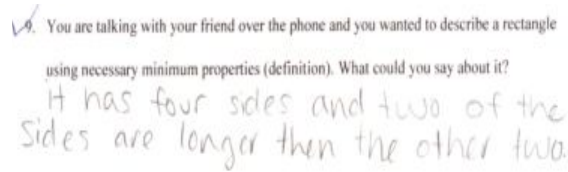 9. You are talking with your friend over the phone and you wanted to describe a rectangle
using necessary minimum properties (definition). What could you say about it?
It has four sides and two of the
Sides are longer then the other two.